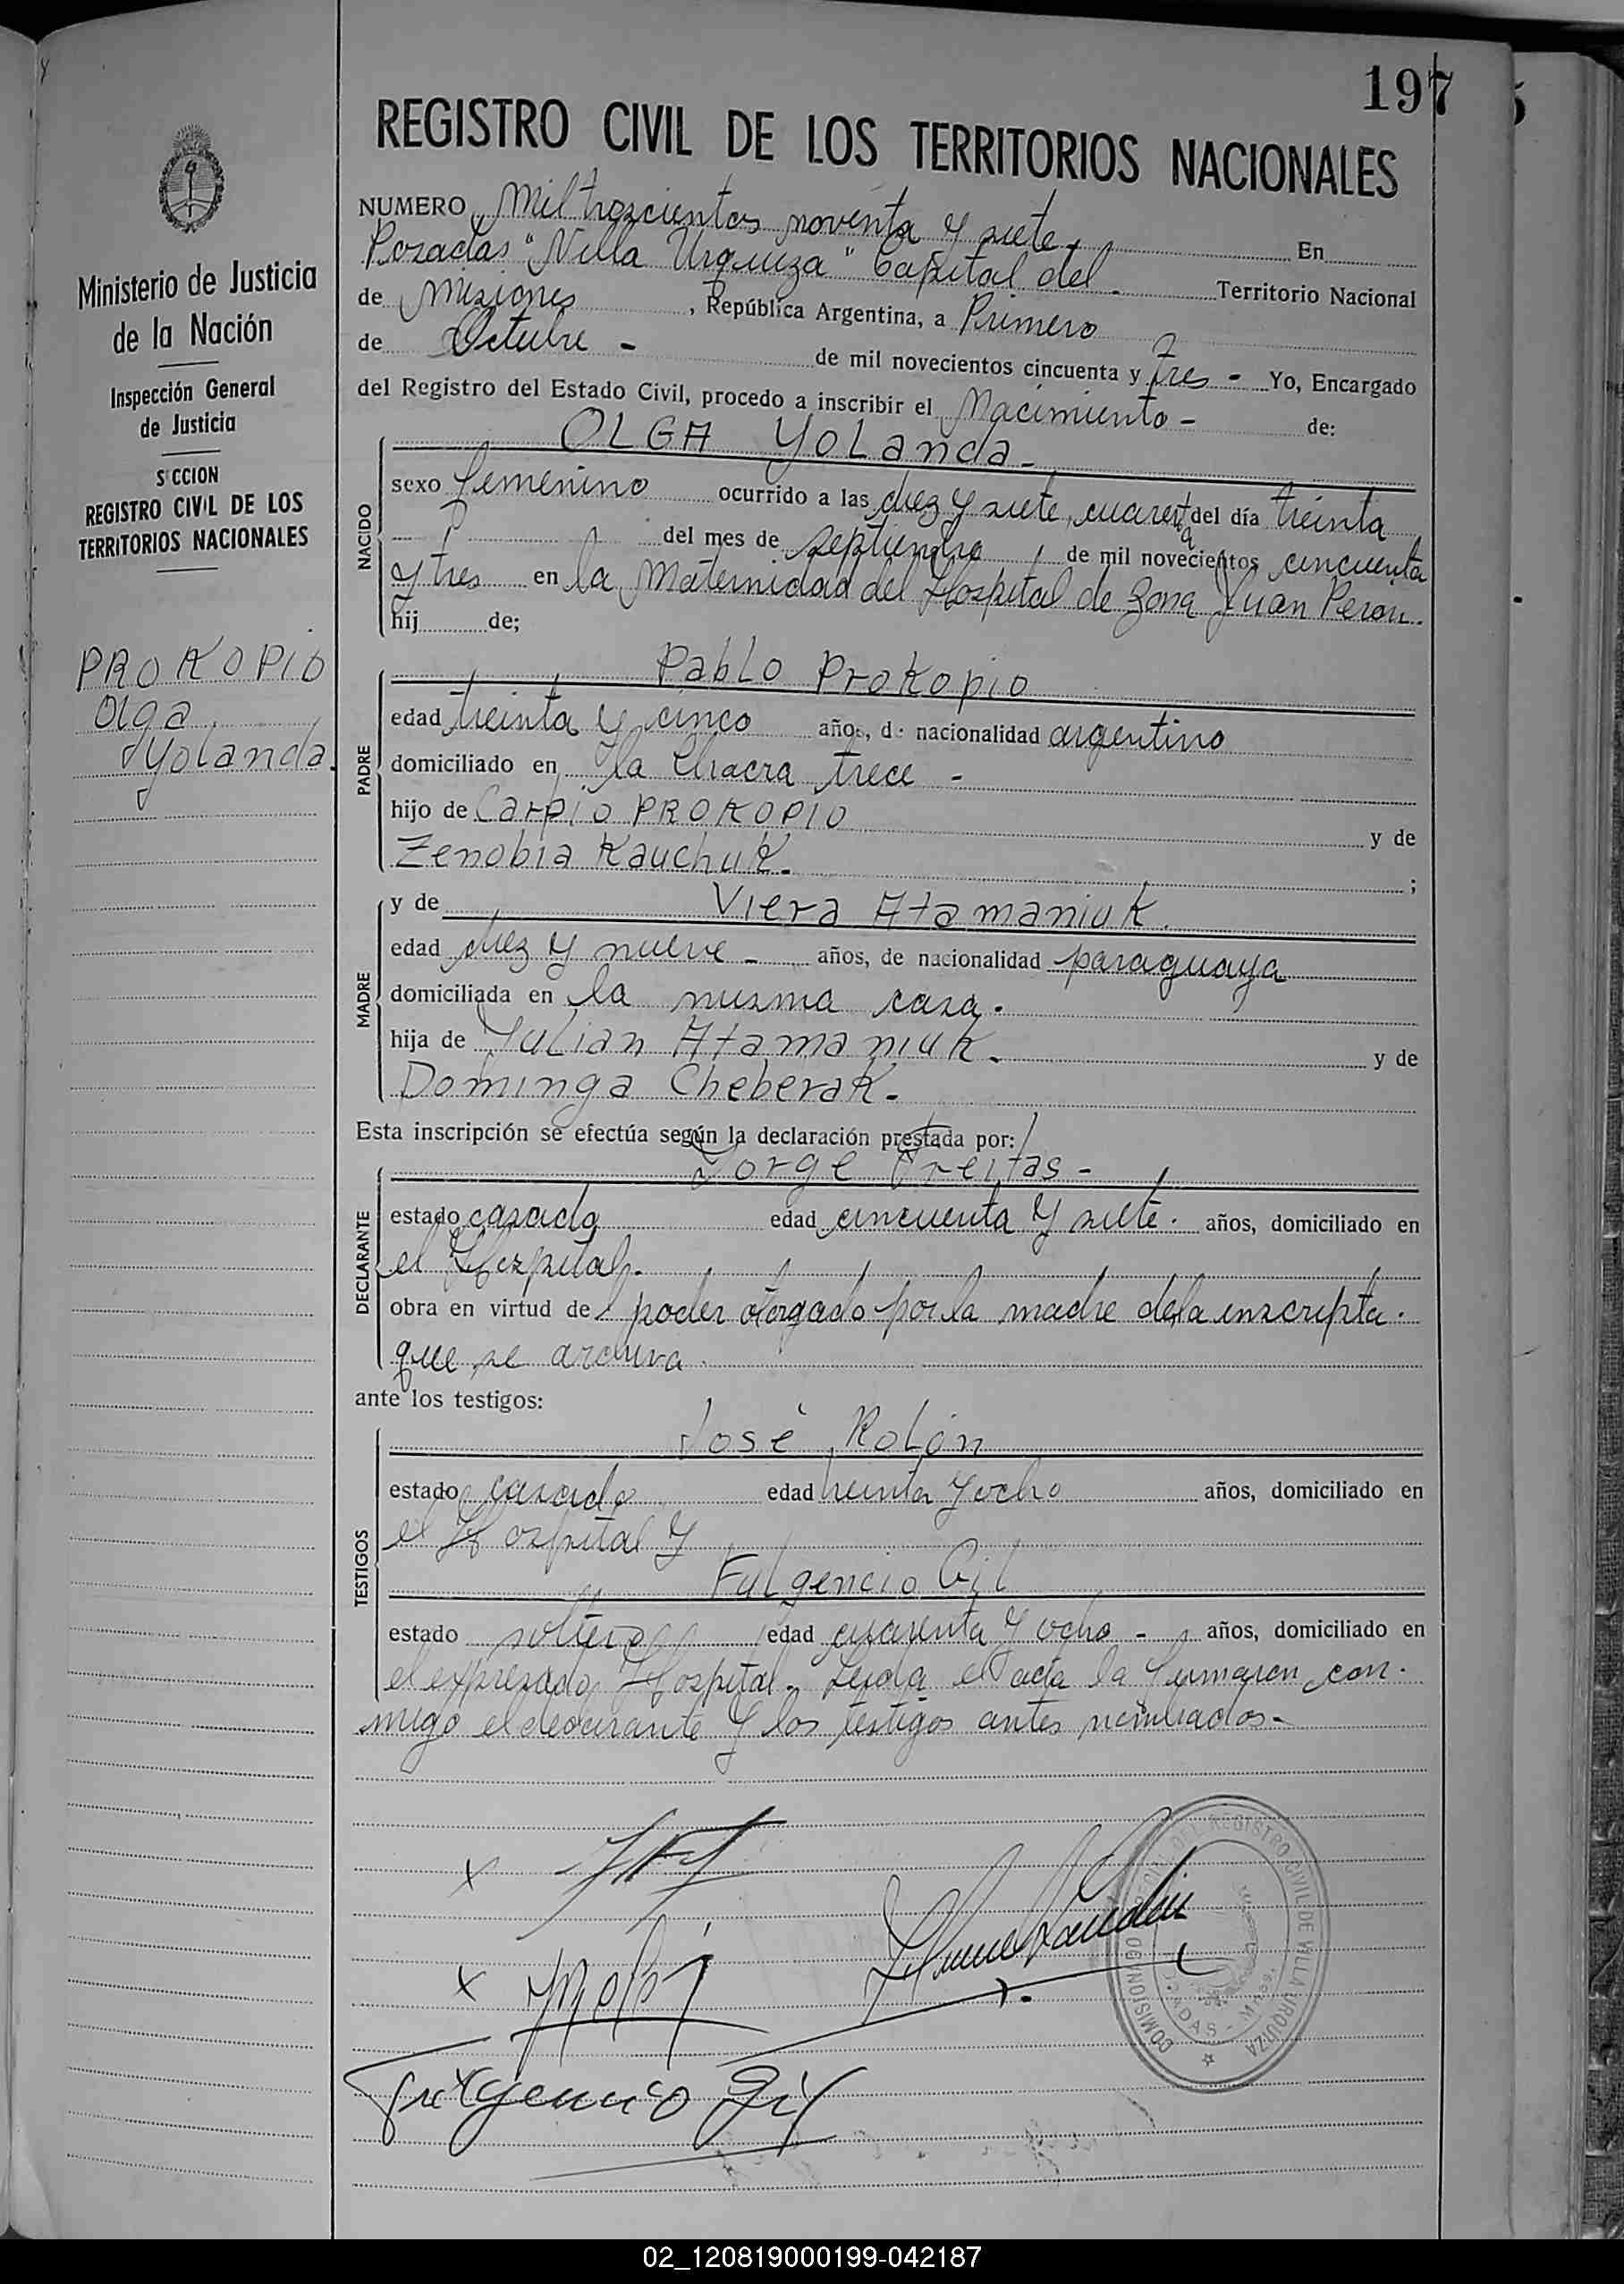 197
REGISTRO CIVIL DE LOS TERRITORIOS NACIONALES
Ministerio de Justicia
de la Nación
Inspección General
de Justicia
S CCION
REGISTRO CIVIL DE LOS
TERRITORIOS NACIONALES
PROKOPIO
Olga
Yolanda.
NUMERO Mil trescientos noventa y siete. En
Posadas "Villa Urquiza" Capital del Territorio Nacional
de Misiones, República Argentina, a Primero
de Octubre - de mil novecientos cincuenta y tres - Yo, Encargado
del Registro del Estado Civil, procedo a inscribir el Nacimiento - de:
OLGA Yolanda-
NACIDO
sexo femenino ocurrido a las diez y siete, cuarenta del día treinta
del mes de septiembre, de mil novecientos cincuenta
y tres en la Maternidad del Hospital de Zona Juan Peron.
hij de;
PADRE
Pablo Prokopio
edad treinta y cinco años, de nacionalidad argentino
domiciliado en la Chacra trece -
hijo de Carpio PROKOPIO y de
Zenobia Kauchuk. ;
MADRE
y de Viera Atamaniuk.
edad diez y nueve - años, de nacionalidad paraguaya
domiciliada en la misma casa.
hija de Julian Atamaniuk. y de
Dominga Cheberak.
Esta inscripción se efectúa según la declaración prestada por:
DECLARANTE
Jorge Freitas -
estado casado edad cincuenta y siete. años, domiciliado en
el Hospital.
obra en virtud del poder otorgado por la madre de la inscripta.
que se archiva.
ante los testigos:
TESTIGOS
José Rolón
estado casado edad treinta y ocho años, domiciliado en
el Hospital y
Fulgencio Gil
estado soltero edad cuarenta y ocho - años, domiciliado en
el expresado Hospital. Leida el acta la firmaron con-
migo el declarante y los testigos antes nombrados-
x
x
Fulgencio Gil
DEL REGISTRO CIVIL DE VILLA URQUIZA
02_120819000199-042187